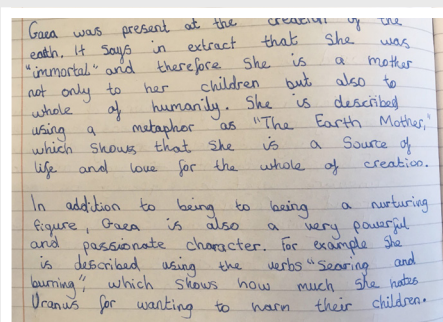 Gaea was present at the creation of the
earth. It says in extract that she was
"immortal" and therefore she is a mother
not only to her children but also to
whole of humanity. She is described
using a metaphor as "The Earth Mother,"
which shows that she is a source of
life and love for the whole of creation.
In addition to being to being a nurturing
figure, Gaea is also a very powerful
and passionate character. For example she
is described using the verbs "Searing and
burning", which shows how much she hates
Uranus for wanting to harm their children.